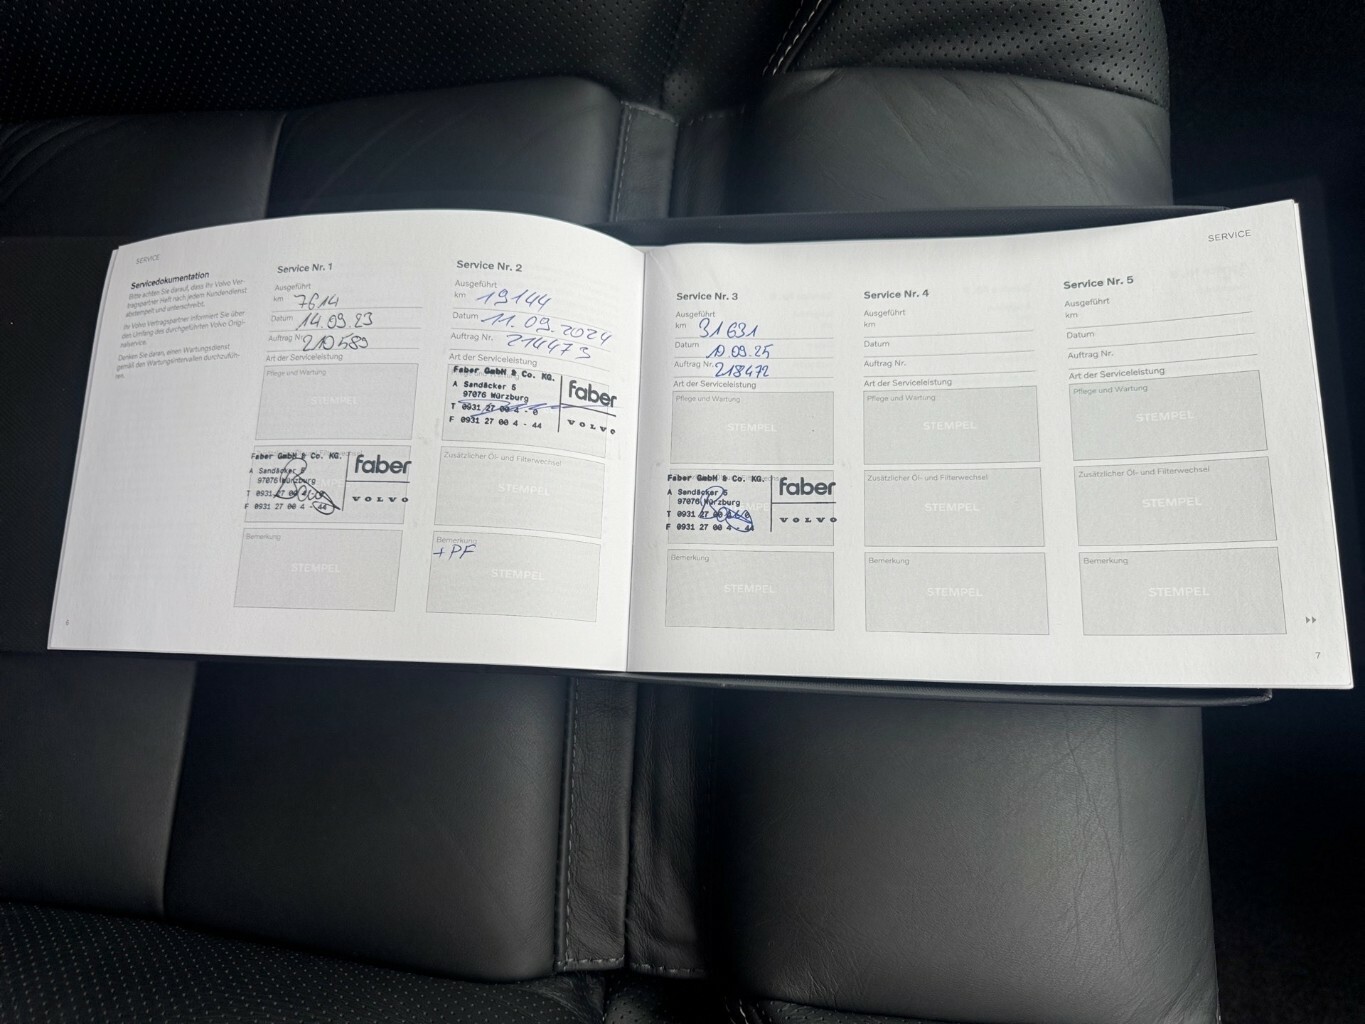 SERVICE
Servicedokumentation
Bitte achten Sie darauf, dass Ihr Volvo Ver-
tragspartner Heft nach jedem Kundendienst
abstempelt und unterschreibt.
Ihr Volvo Vertragspartner informiert Sie über
des Umfang des durchgeführten Volvo Origi-
nalservice.
Denken Sie daran, einen Wartungsdienst
gemäß den Wartungsintervallen durchzufüh-
ren.
6
Service Nr. 1
Ausgeführt
km 7614
Datum 14.09.23
Auftrag Nr. 210589
Art der Serviceleistung
Pflege und Wartung
STEMPEL
Faber GmbH & Co. KG.
A Sandäcker 5
97076 Würzburg
T 0931 27 00 4
F 0931 27 00 4 - 44
faber
VOLVO
Bemerkung
STEMPEL
Service Nr. 2
Ausgeführt
km 19144
Datum 11.09.2024
Auftrag Nr. 214473
Art der Serviceleistung
Faber GmbH & Co. KG.
A Sandäcker 5
97076 Würzburg
T 0931 27 00 4 - 0
F 0931 27 00 4 - 44
faber
VOLVO
Zusätzlicher Öl- und Filterwechsel
STEMPEL
Bemerkung
+PF
STEMPEL
SERVICE
Service Nr. 3
Ausgeführt
km 31631
Datum 10.09.25
Auftrag Nr. 218472
Art der Serviceleistung
Pflege und Wartung
STEMPEL
Faber GmbH & Co. KG.
A Sandäcker 5
97076 Würzburg
T 0931 27 00 4 - 0
F 0931 27 00 4 - 44
faber
VOLVO
Bemerkung
STEMPEL
Service Nr. 4
Ausgeführt
km
Datum
Auftrag Nr.
Art der Serviceleistung
Pflege und Wartung
STEMPEL
Zusätzlicher Öl- und Filterwechsel
STEMPEL
Bemerkung
STEMPEL
Service Nr. 5
Ausgeführt
km
Datum
Auftrag Nr.
Art der Serviceleistung
Pflege und Wartung
STEMPEL
Zusätzlicher Öl- und Filterwechsel
STEMPEL
Bemerkung
STEMPEL
7